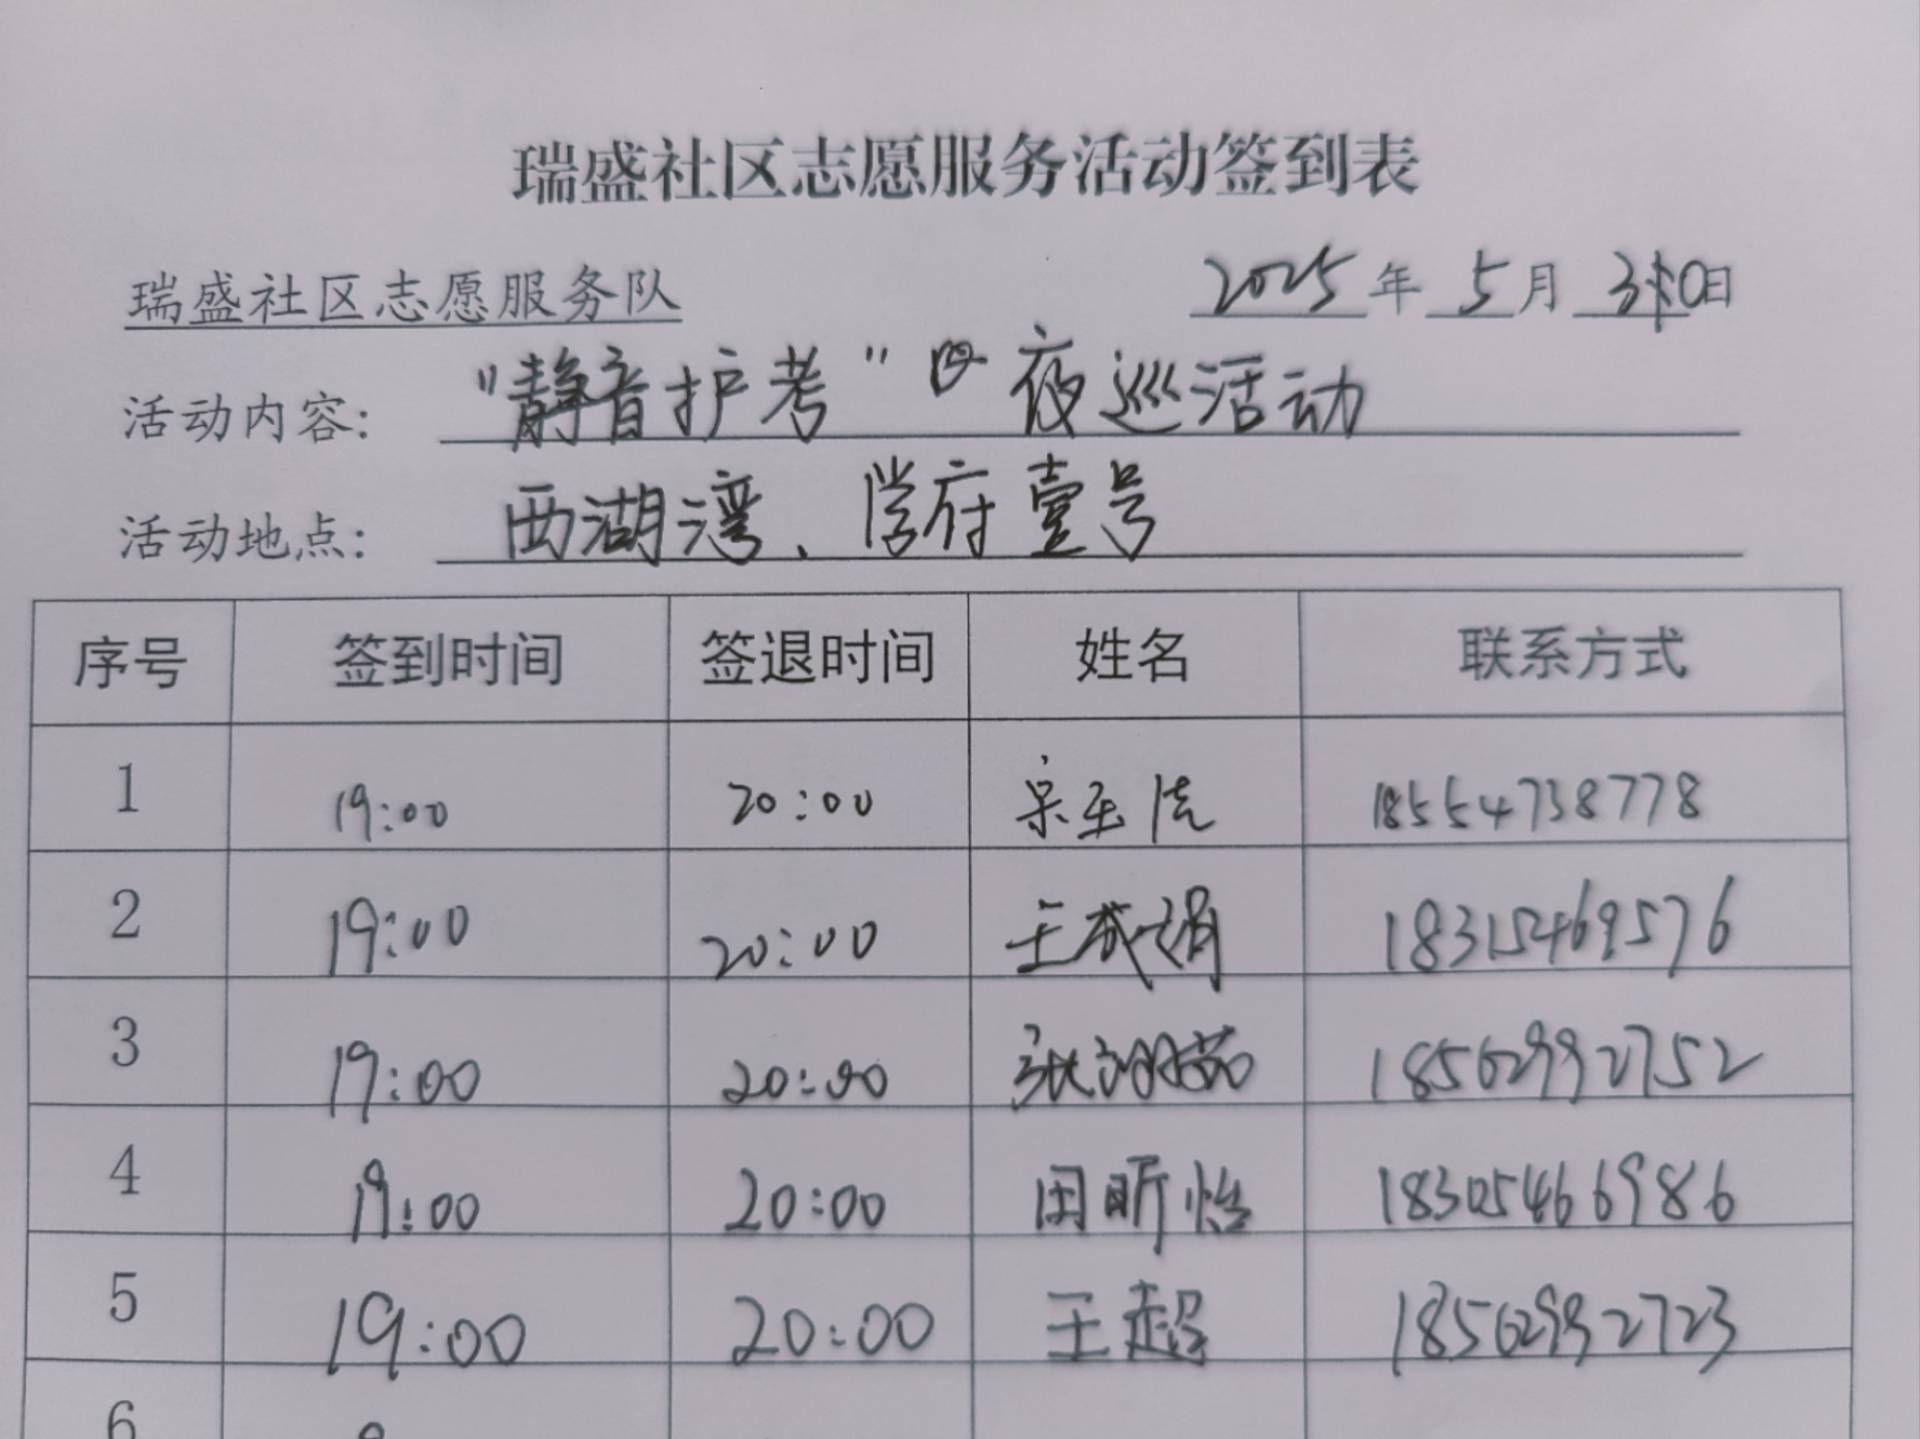 瑞盛社区志愿服务活动签到表
瑞盛社区志愿服务队 2025年 5月 30日
活动内容: "静音护考" 夜巡活动
活动地点: 西湖湾、学府壹号
序号 签到时间 签退时间 姓名 联系方式
1 19:00 20:00 18554738778
2 19:00 20:00 王成娟 18315469576
3 19:00 20:00 18562992752
4 19:00 20:00 田昕怡 18305466986
5 19:00 20:00 王超 18562992723
6